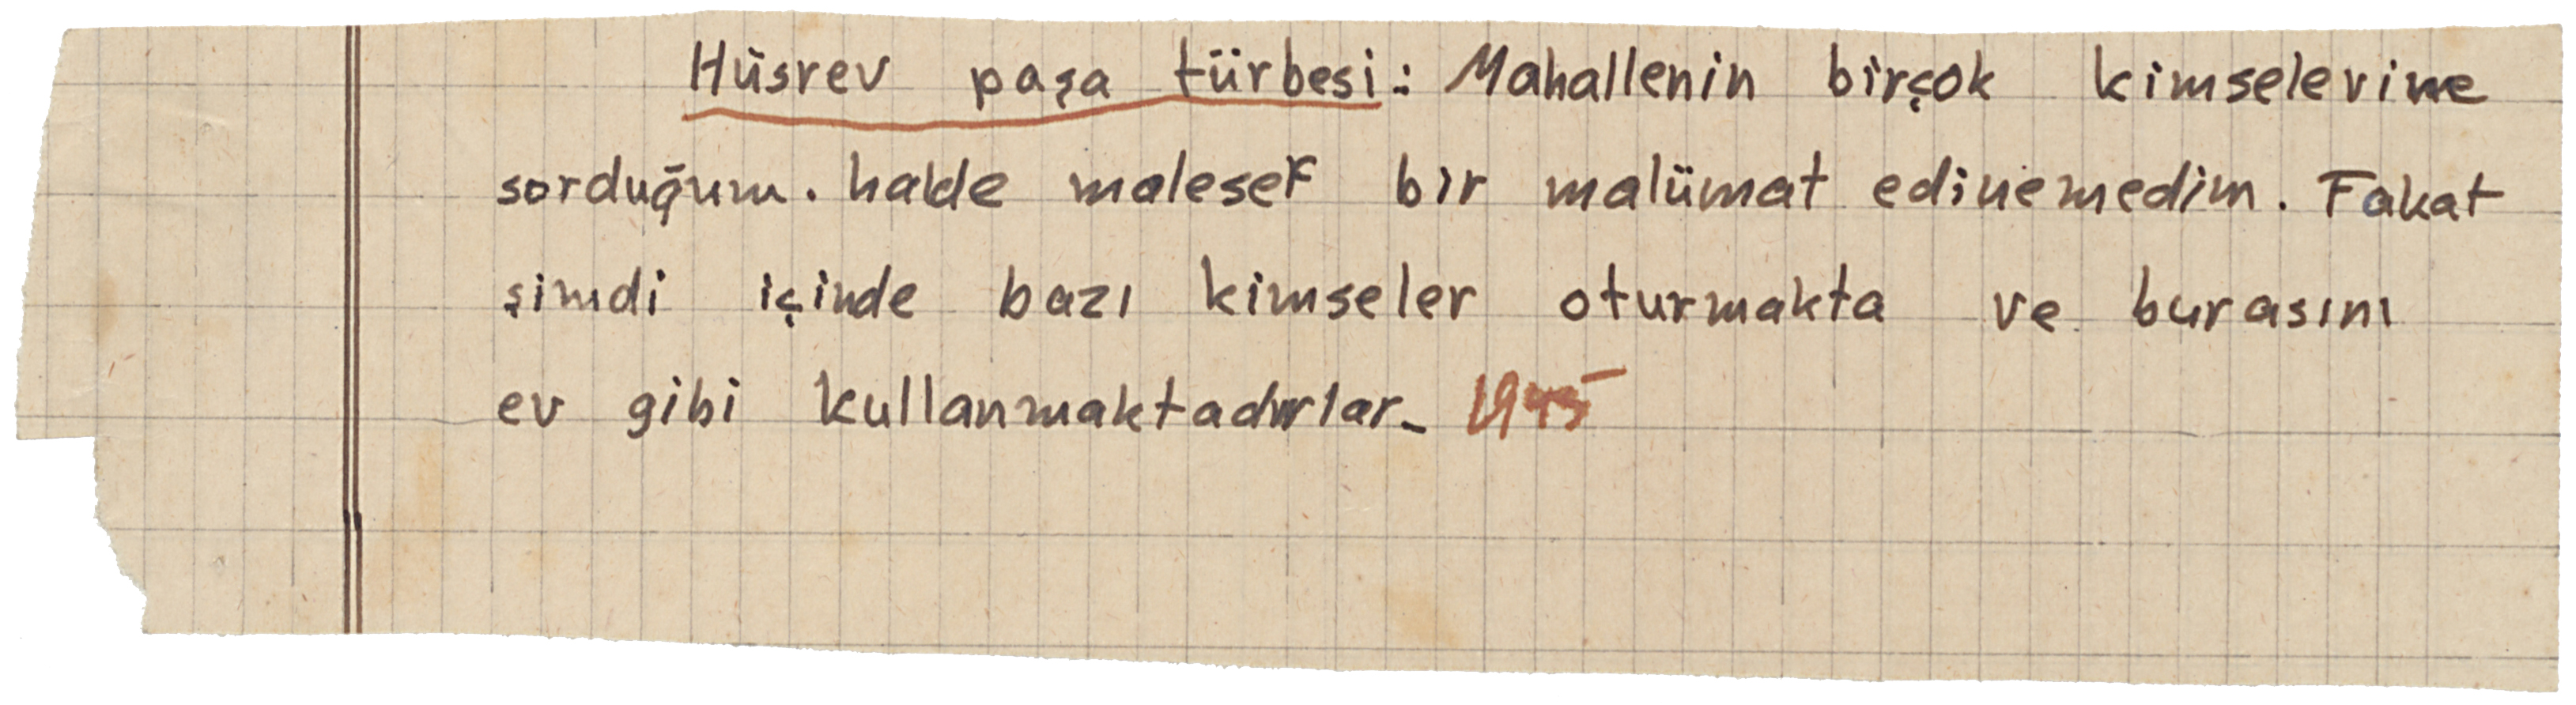 Hüsrev paşa türbesi: Mahallenin birçok kimselerine
sorduğum. halde malesef bir malümat edinemedim. Fakat
şimdi içinde bazı kimseler oturmakta ve burasını
ev gibi kullanmaktadırlar. 1945